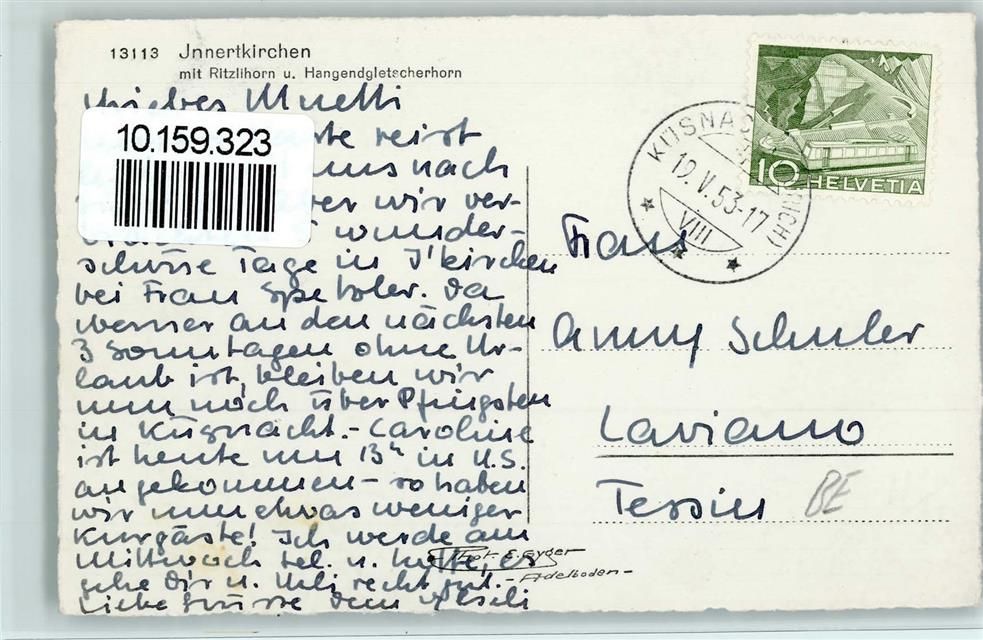 13113 Jnnertkirchen
mit Ritzlihorn u. Hangendgletscherhorn
Liebes Muetti
10.159.323
reist
uns nach
aber wir ver-
wunder-
schöne Tage in J'kirchen
bei Frau . Da
Werner an den nächsten
3 Sonntagen ohne Ur-
laub ist, bleiben wir
nun noch über Pfingsten
in Küsnacht. - Caroline
ist heute um 13h in U.S.
angekommen - so haben
wir nun etwas weniger
Kurgäste! Ich werde am
Mittwoch tel. u. hoffe, es
gehe Dir u. Ueli recht gut.
Liebe Grüsse Dein
10 HELVETIA
KÜSNACHT (ZÜRICH)
19.V.53-17
VIII
Frau
Anny Schuler
Caviano
Tessin
BE
Phot. E. Gyger
- Adelboden -